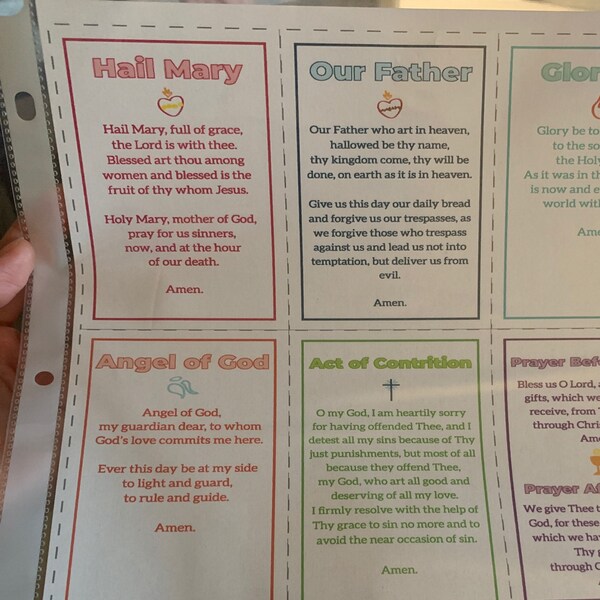 Hail Mary
Hail Mary, full of grace,
the Lord is with thee.
Blessed art thou among
women and blessed is the
fruit of thy whom Jesus.
Holy Mary, mother of God,
pray for us sinners,
now, and at the hour
of our death.
Amen.
Our Father
Our Father who art in heaven,
hallowed be thy name,
thy kingdom come, thy will be
done, on earth as it is in heaven.
Give us this day our daily bread
and forgive us our trespasses, as
we forgive those who trespass
against us and lead us not into
temptation, but deliver us from
evil.
Amen.
Glory be to
to the
the Holy
As it was in
is now and
world with
Angel of God
Angel of God,
my guardian dear, to whom
God's love commits me here.
Ever this day be at my side
to light and guard,
to rule and guide.
Amen.
Act of Contrition
O my God, I am heartily sorry
for having offended Thee, and I
detest all my sins because of Thy
just punishments, but most of all
because they offend Thee,
my God, who art all good and
deserving of all my love.
I firmly resolve with the help of
Thy grace to sin no more and to
avoid the near occasion of sin.
Amen.
Prayer
Bless us O Lord,
gifts, which we
receive, from
through
Prayer
We give Thee
God, for these
which we
Thy
through